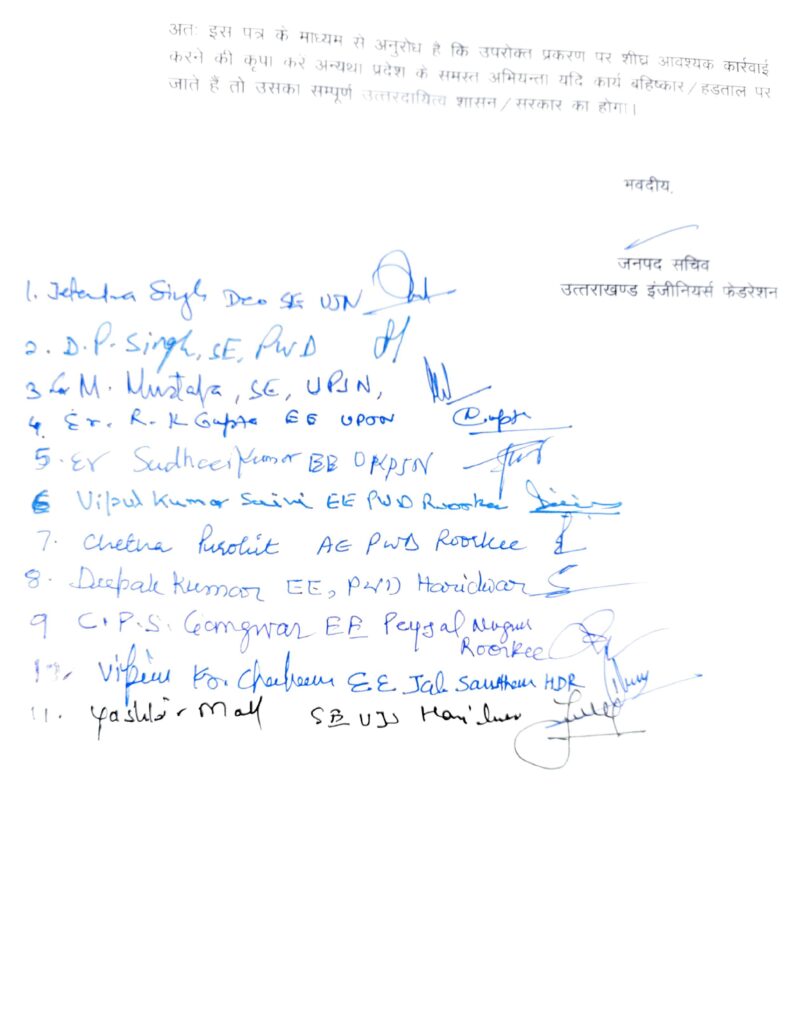 अतः इस पत्र के माध्यम से अनुरोध है कि उपरोक्त प्रकरण पर शीघ्र आवश्यक कार्रवाई
करने की कृपा करें अन्यथा प्रदेश के समस्त अभियन्ता यदि कार्य बहिष्कार/हडताल पर
जाते हैं तो उसका सम्पूर्ण उत्तरदायित्व शासन/सरकार का होगा।
भवदीय,
जनपद सचिव
उत्तराखण्ड इंजीनियर्स फेडरेशन
1. Jetendra Singh Deo SE UJN
2. D.P. Singh, SE, PWD
3 M. Mustafa, SE, UPJN,
4. Er. R. K Gupta EE
5. Er Sudheer Kumar EE
6 Vipul Kumar Saini EE PWD Roorkee
7. Chetna Purohit AE PWD Roorkee
8. Deepak Kumar EE, PWD Haridwar
9 C.P.S. Gangwar EE Peyjal Nigam
Roorkee
Vipin Kr. Chauhan EE Jal Sansthan HDR
11. Yashbir Mall SE UJS Haridwar